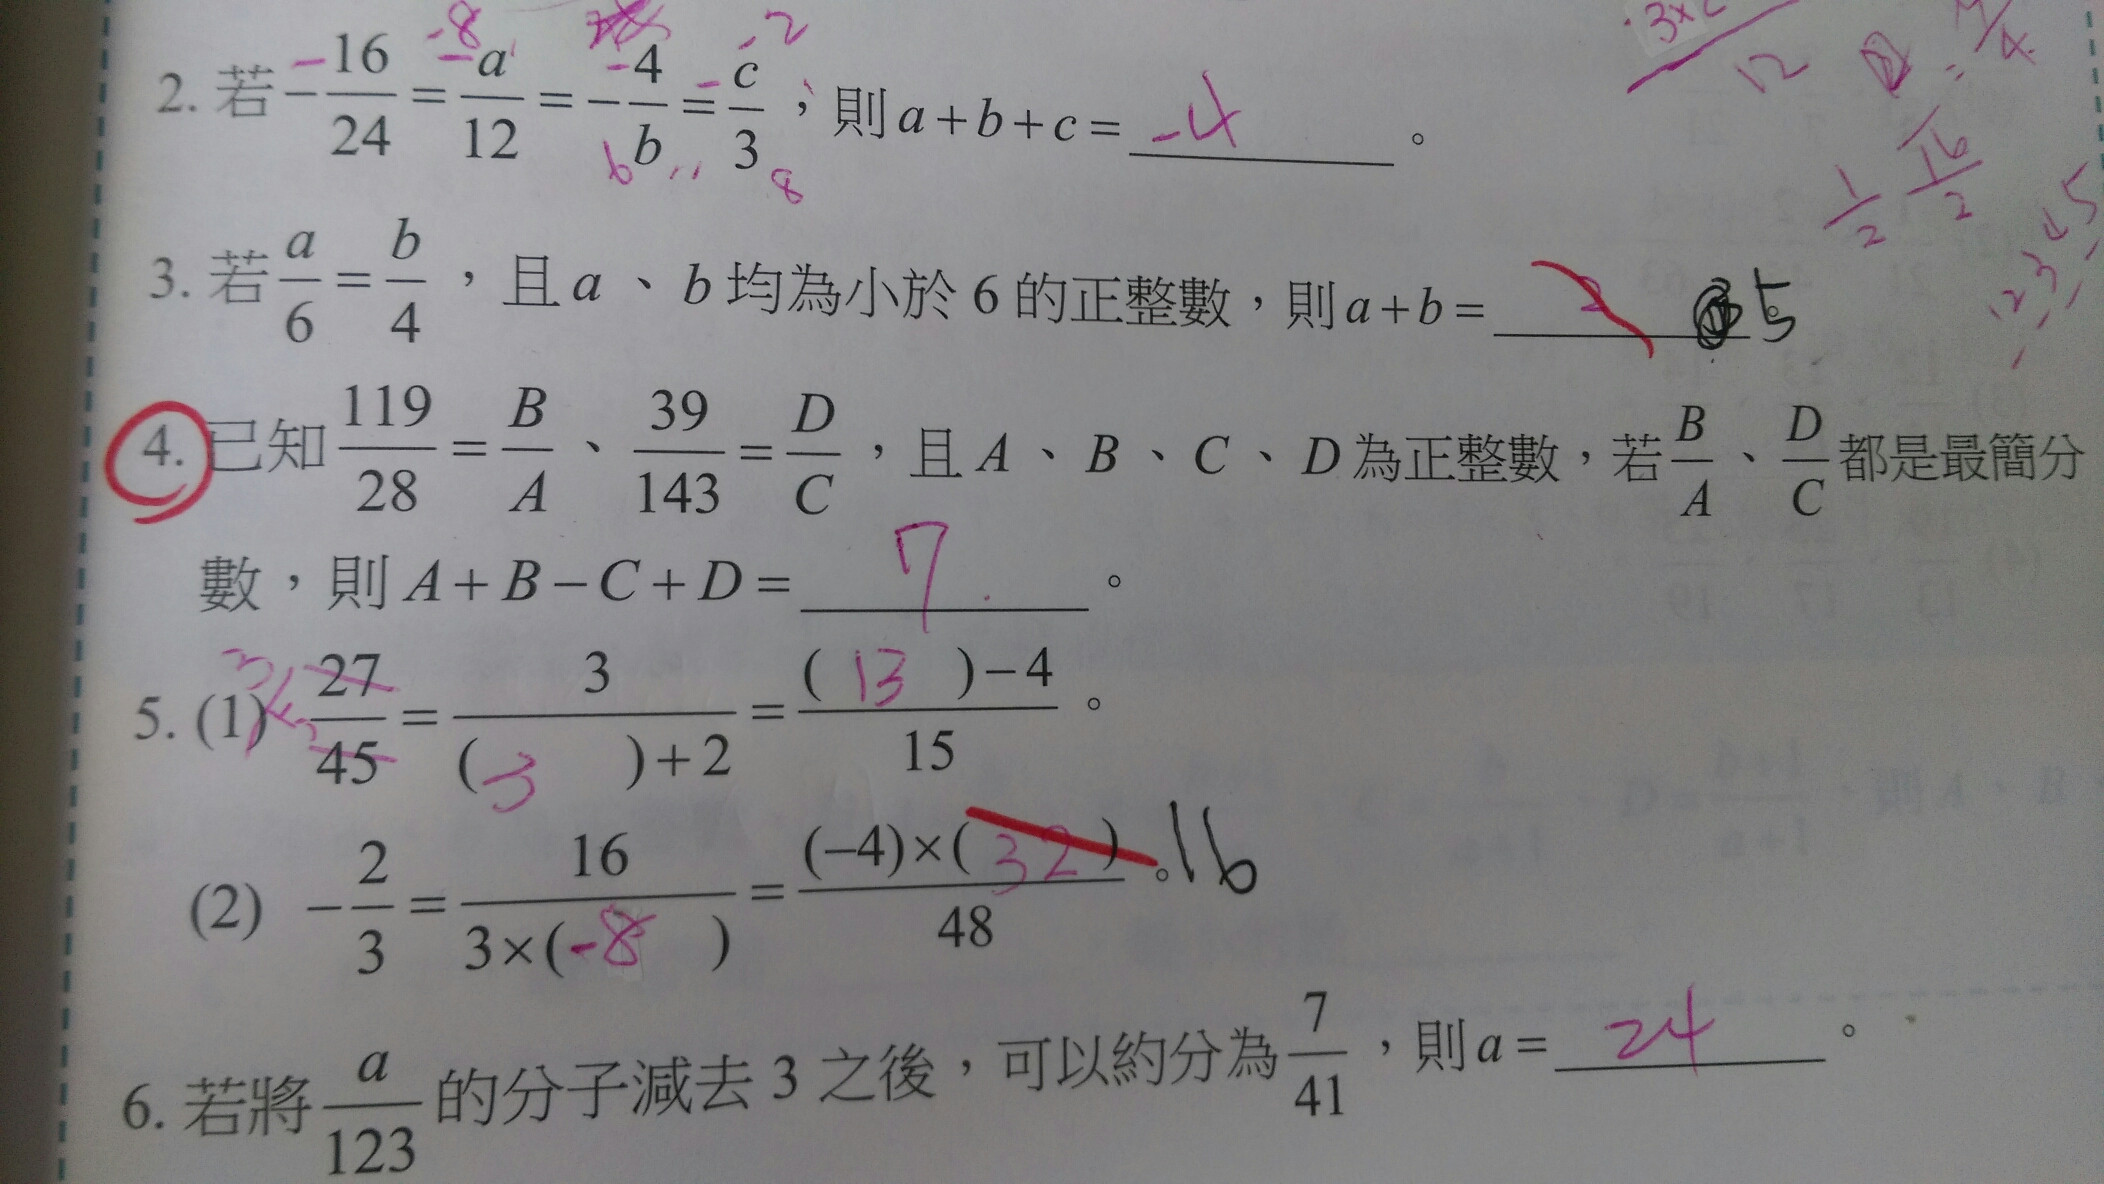 2. 若 -16/24 = a/12 = -4/b = c/3，則 a+b+c= -4 。
-8 -2
6 8
3. 若 a/6 = b/4 ，且 a 、 b 均為小於 6 的正整數，則 a+b= 2 5
4. 已知 119/28 = B/A 、 39/143 = D/C ，且 A 、 B 、 C 、 D 為正整數，若 B/A 、 D/C 都是最簡分
數，則 A+B−C+D= 7 。
5. (1) 27/45 = 3/(3)+2 = (13)−4/15 。
(2) −2/3 = 16/3×(-8) = (−4)×(32)/48 。 16
6. 若將 a/123 的分子減去 3 之後，可以約分為 7/41 ，則 a= 24 。
12
1/2